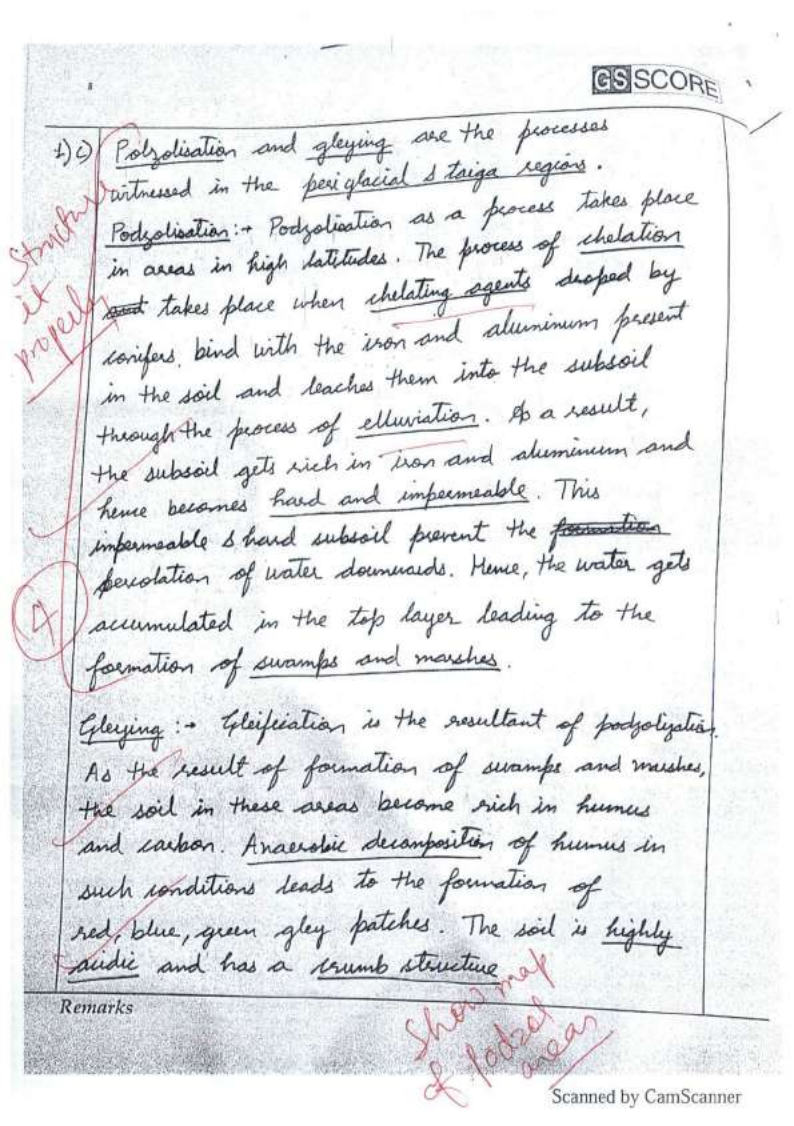 GS SCORE
1) c) Polzolisation and gleying are the processes
witnessed in the periglacial & taiga regions.
Podzolisation :→ Podzolisation as a process takes place
in areas in high latitudes. The process of chelation
and takes place when chelating agents droped by
conifers, bind with the iron and aluminum present
in the soil and leaches them into the subsoil
through the process of elluviation. As a result,
the subsoil gets rich in iron and aluminum and
hence becomes hard and impermeable. This
impermeable & hard subsoil prevent the formation
percolation of water downwards. Hence, the water gets
accumulated in the top layer leading to the
formation of swamps and marshes.
Structure
it
properly
4
Gleying :→ Gleification is the resultant of podzolization.
As the result of formation of swamps and marshes,
the soil in these areas become rich in humus
and carbon. Anaerobic decomposition of humus in
such conditions leads to the formation of
red, blue, green gley patches. The soil is highly
acidic and has a crumb structure
Remarks
Show map
of Podzol
areas
Scanned by CamScanner